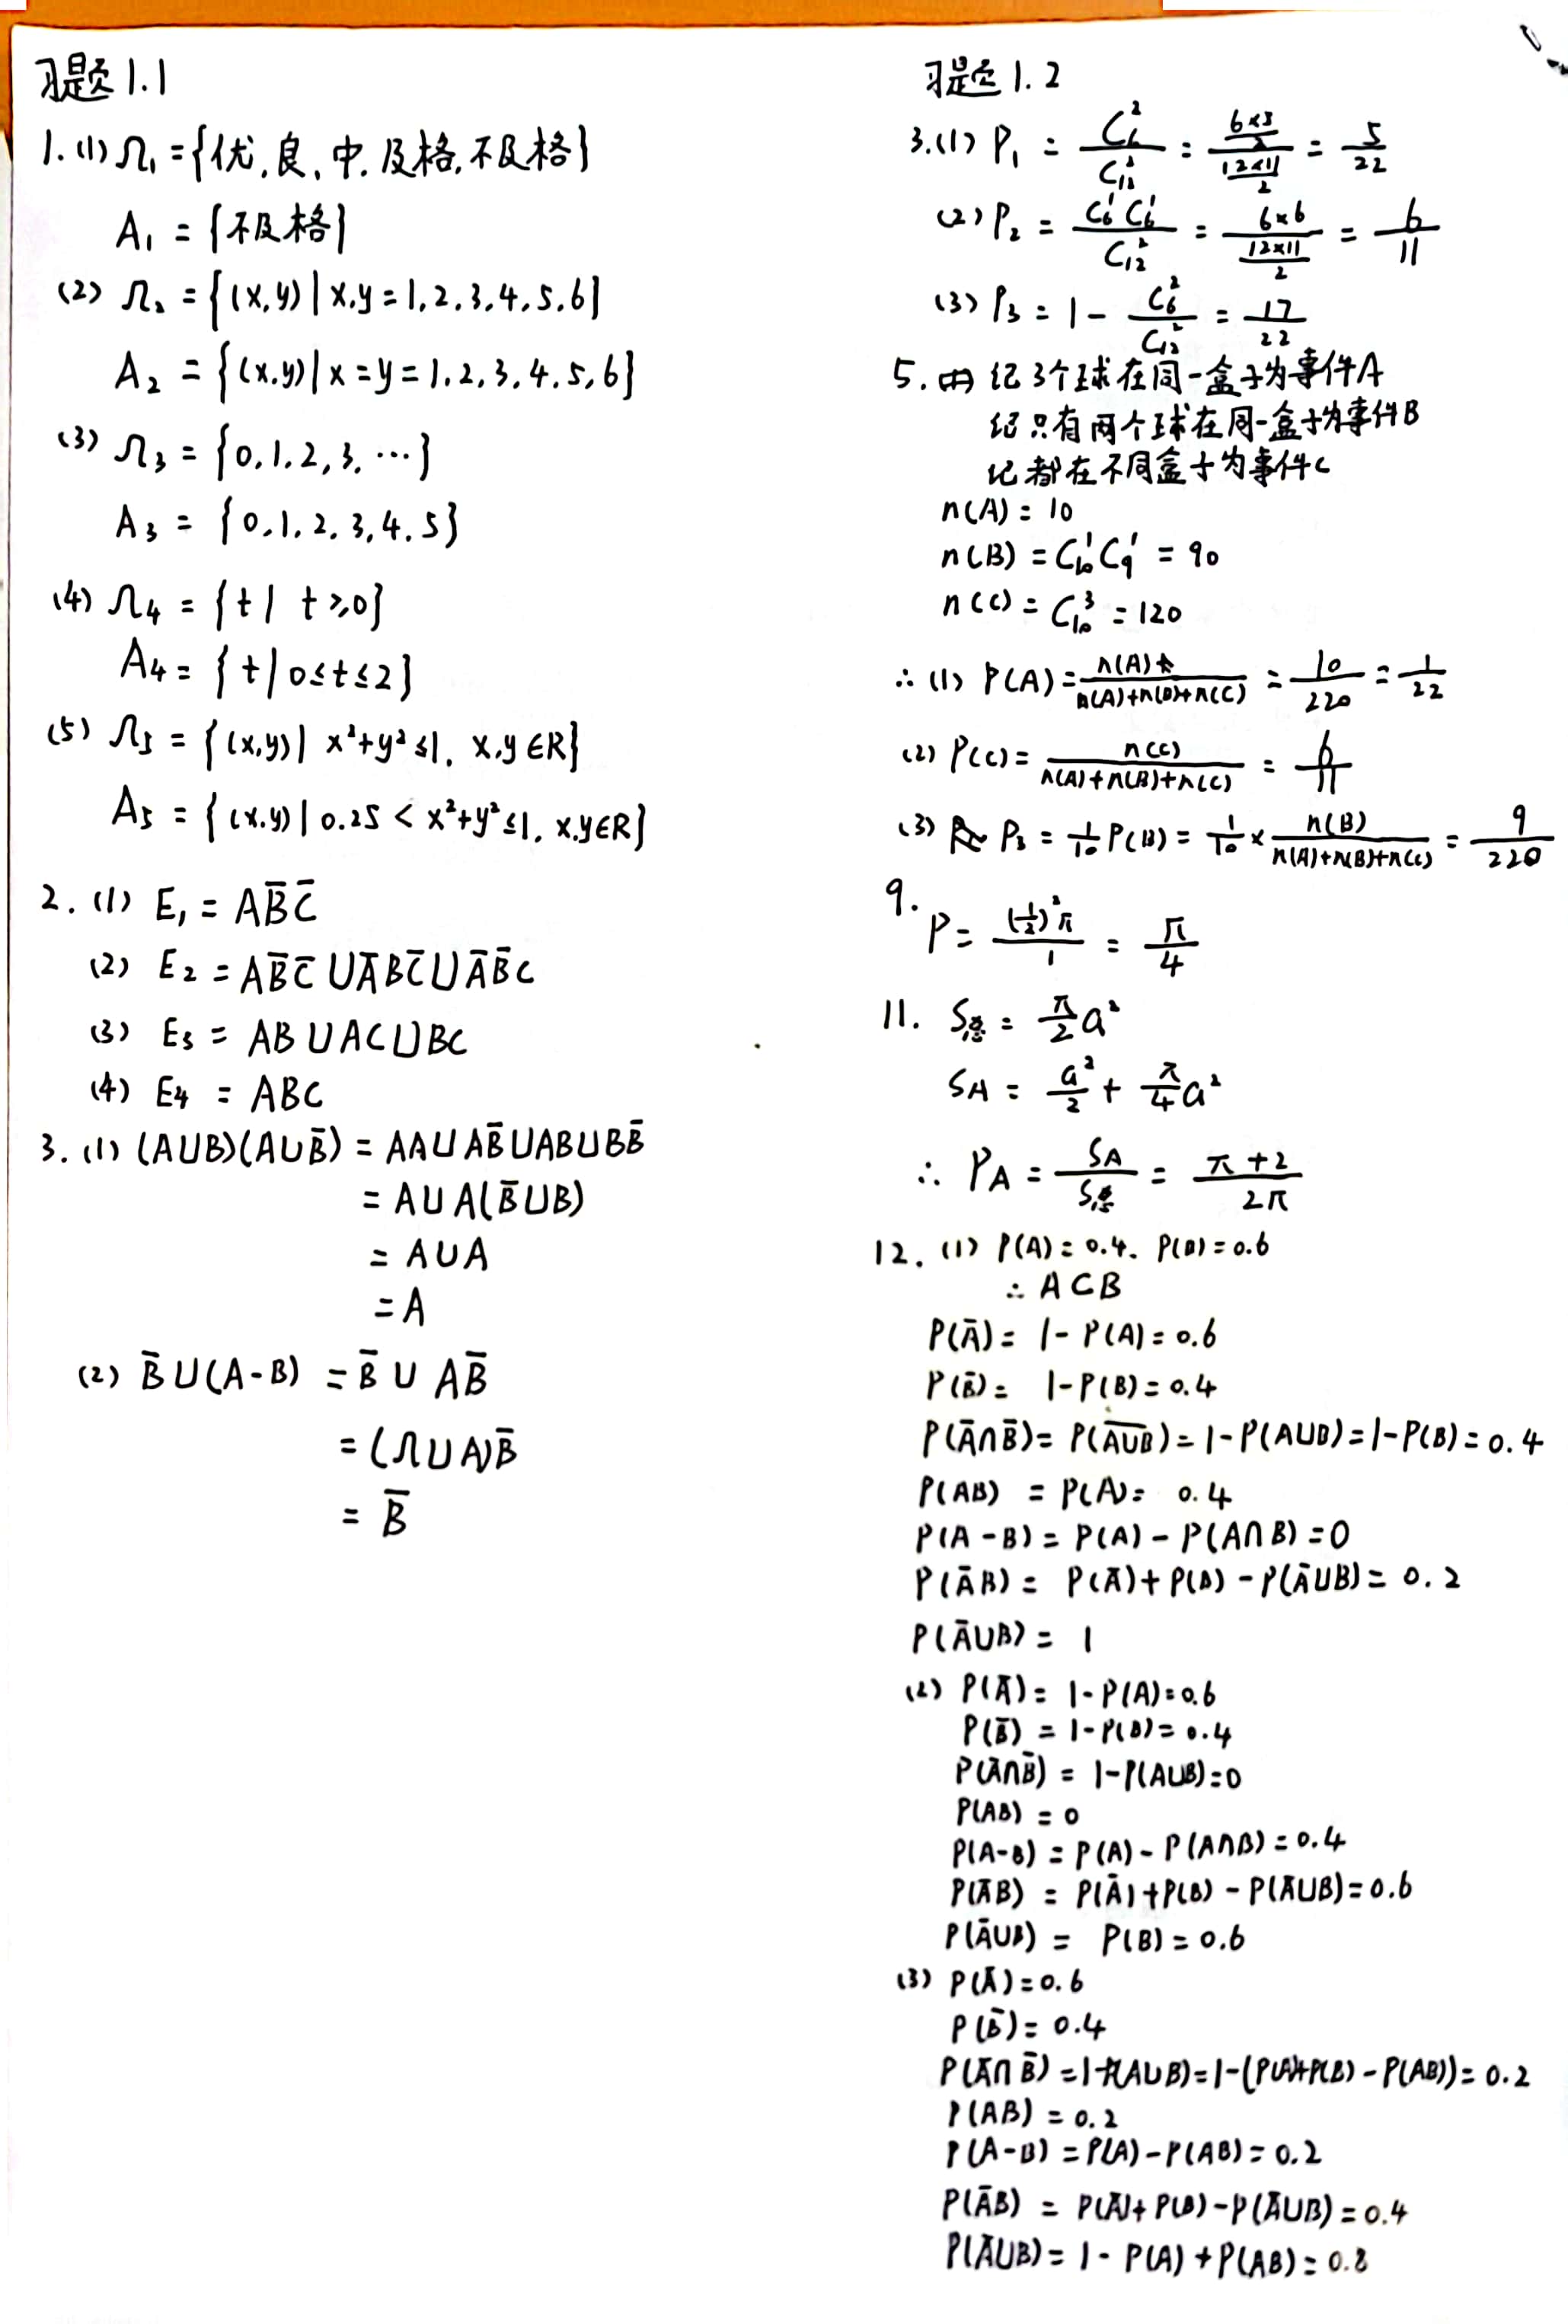 习题1.1
1.(1) Ω₁={优,良、中.及格,不及格}
A₁ = {不及格}
(2) Ω₂ = {(x,y) | x.y=1.2.3.4.5.6}
A₂ = {(x.y) | x=y=1.2.3.4.5,6}
(3) Ω₃ = {0.1.2,3. ⋯}
A₃ = {0.1.2.3.4.5}
(4) Ω₄ = {t | t≥0}
A₄ = {t | 0≤t≤2}
(5) Ω₅ = {(x,y) | x²+y²≤1. x.y∈R}
A₅ = {(x.y) | 0.25 < x²+y²≤1. x.y∈R}
2. (1) E₁ = AB̅C̅
(2) E₂ = AB̅C̅∪A̅BC̅∪A̅B̅C
(3) E₃ = AB∪AC∪BC
(4) E₄ = ABC
3. (1) (A∪B)(A∪B̅) = AA∪AB̅∪AB∪BB̅
= A∪A(B̅∪B)
= A∪A
= A
(2) B̅∪(A-B) = B̅ ∪ AB̅
= (Ω∪A)B̅
= B̅
习题1.2
3.(1) P₁ = C₆²/C₁₂² = (6×5/2)/(12×11/2) = 5/22
(2) P₂ = C₆¹C₆¹/C₁₂² = (6×6)/(12×11/2) = 6/11
(3) P₃ = 1 - C₆²/C₁₂² = 17/22
5. 记3个球在同一盒子为事件A
记只有两个球在同一盒子为事件B
记都在不同盒子为事件C
n(A) = 10
n(B) = C₁₀¹C₉¹ = 90
n(C) = C₁₀³ = 120
∴ (1) P(A) = n(A)/(n(A)+n(B)+n(C)) = 10/220 = 1/22
(2) P(C) = n(C)/(n(A)+n(B)+n(C)) = 6/11
(3) P₃ = 1/10 P(B) = 1/10 × n(B)/(n(A)+n(B)+n(C)) = 9/220
9. P = (1/2)²π/1 = π/4
11. S总 = π/2 a²
SA = a²/2 + π/4 a²
∴ PA = SA/S总 = (π+2)/2π
12. (1) P(A)=0.4. P(B)=0.6
∴ A⊂B
P(A̅) = 1-P(A)=0.6
P(B̅) = 1-P(B)=0.4
P(A̅∩B̅) = P(A̅∪̅B̅) = 1-P(A∪B)=1-P(B)=0.4
P(AB) = P(A) = 0.4
P(A-B) = P(A) - P(A∩B) = 0
P(A̅B) = P(A̅)+P(B) - P(A̅∪B) = 0.2
P(A̅∪B) = 1
(2) P(A̅) = 1-P(A)=0.6
P(B̅) = 1-P(B)=0.4
P(A̅∩B̅) = 1-P(A∪B)=0
P(AB) = 0
P(A-B) = P(A) - P(A∩B) = 0.4
P(A̅B) = P(A̅)+P(B) - P(A̅∪B)=0.6
P(A̅∪B) = P(B) = 0.6
(3) P(A̅) = 0.6
P(B̅) = 0.4
P(A̅∩B̅) = 1-P(A∪B)=1-(P(A)+P(B)-P(AB))=0.2
P(AB) = 0.2
P(A-B) = P(A)-P(AB)=0.2
P(A̅B) = P(A̅)+P(B)-P(A̅∪B)=0.4
P(A̅∪B) = 1 - P(A) + P(AB) = 0.8